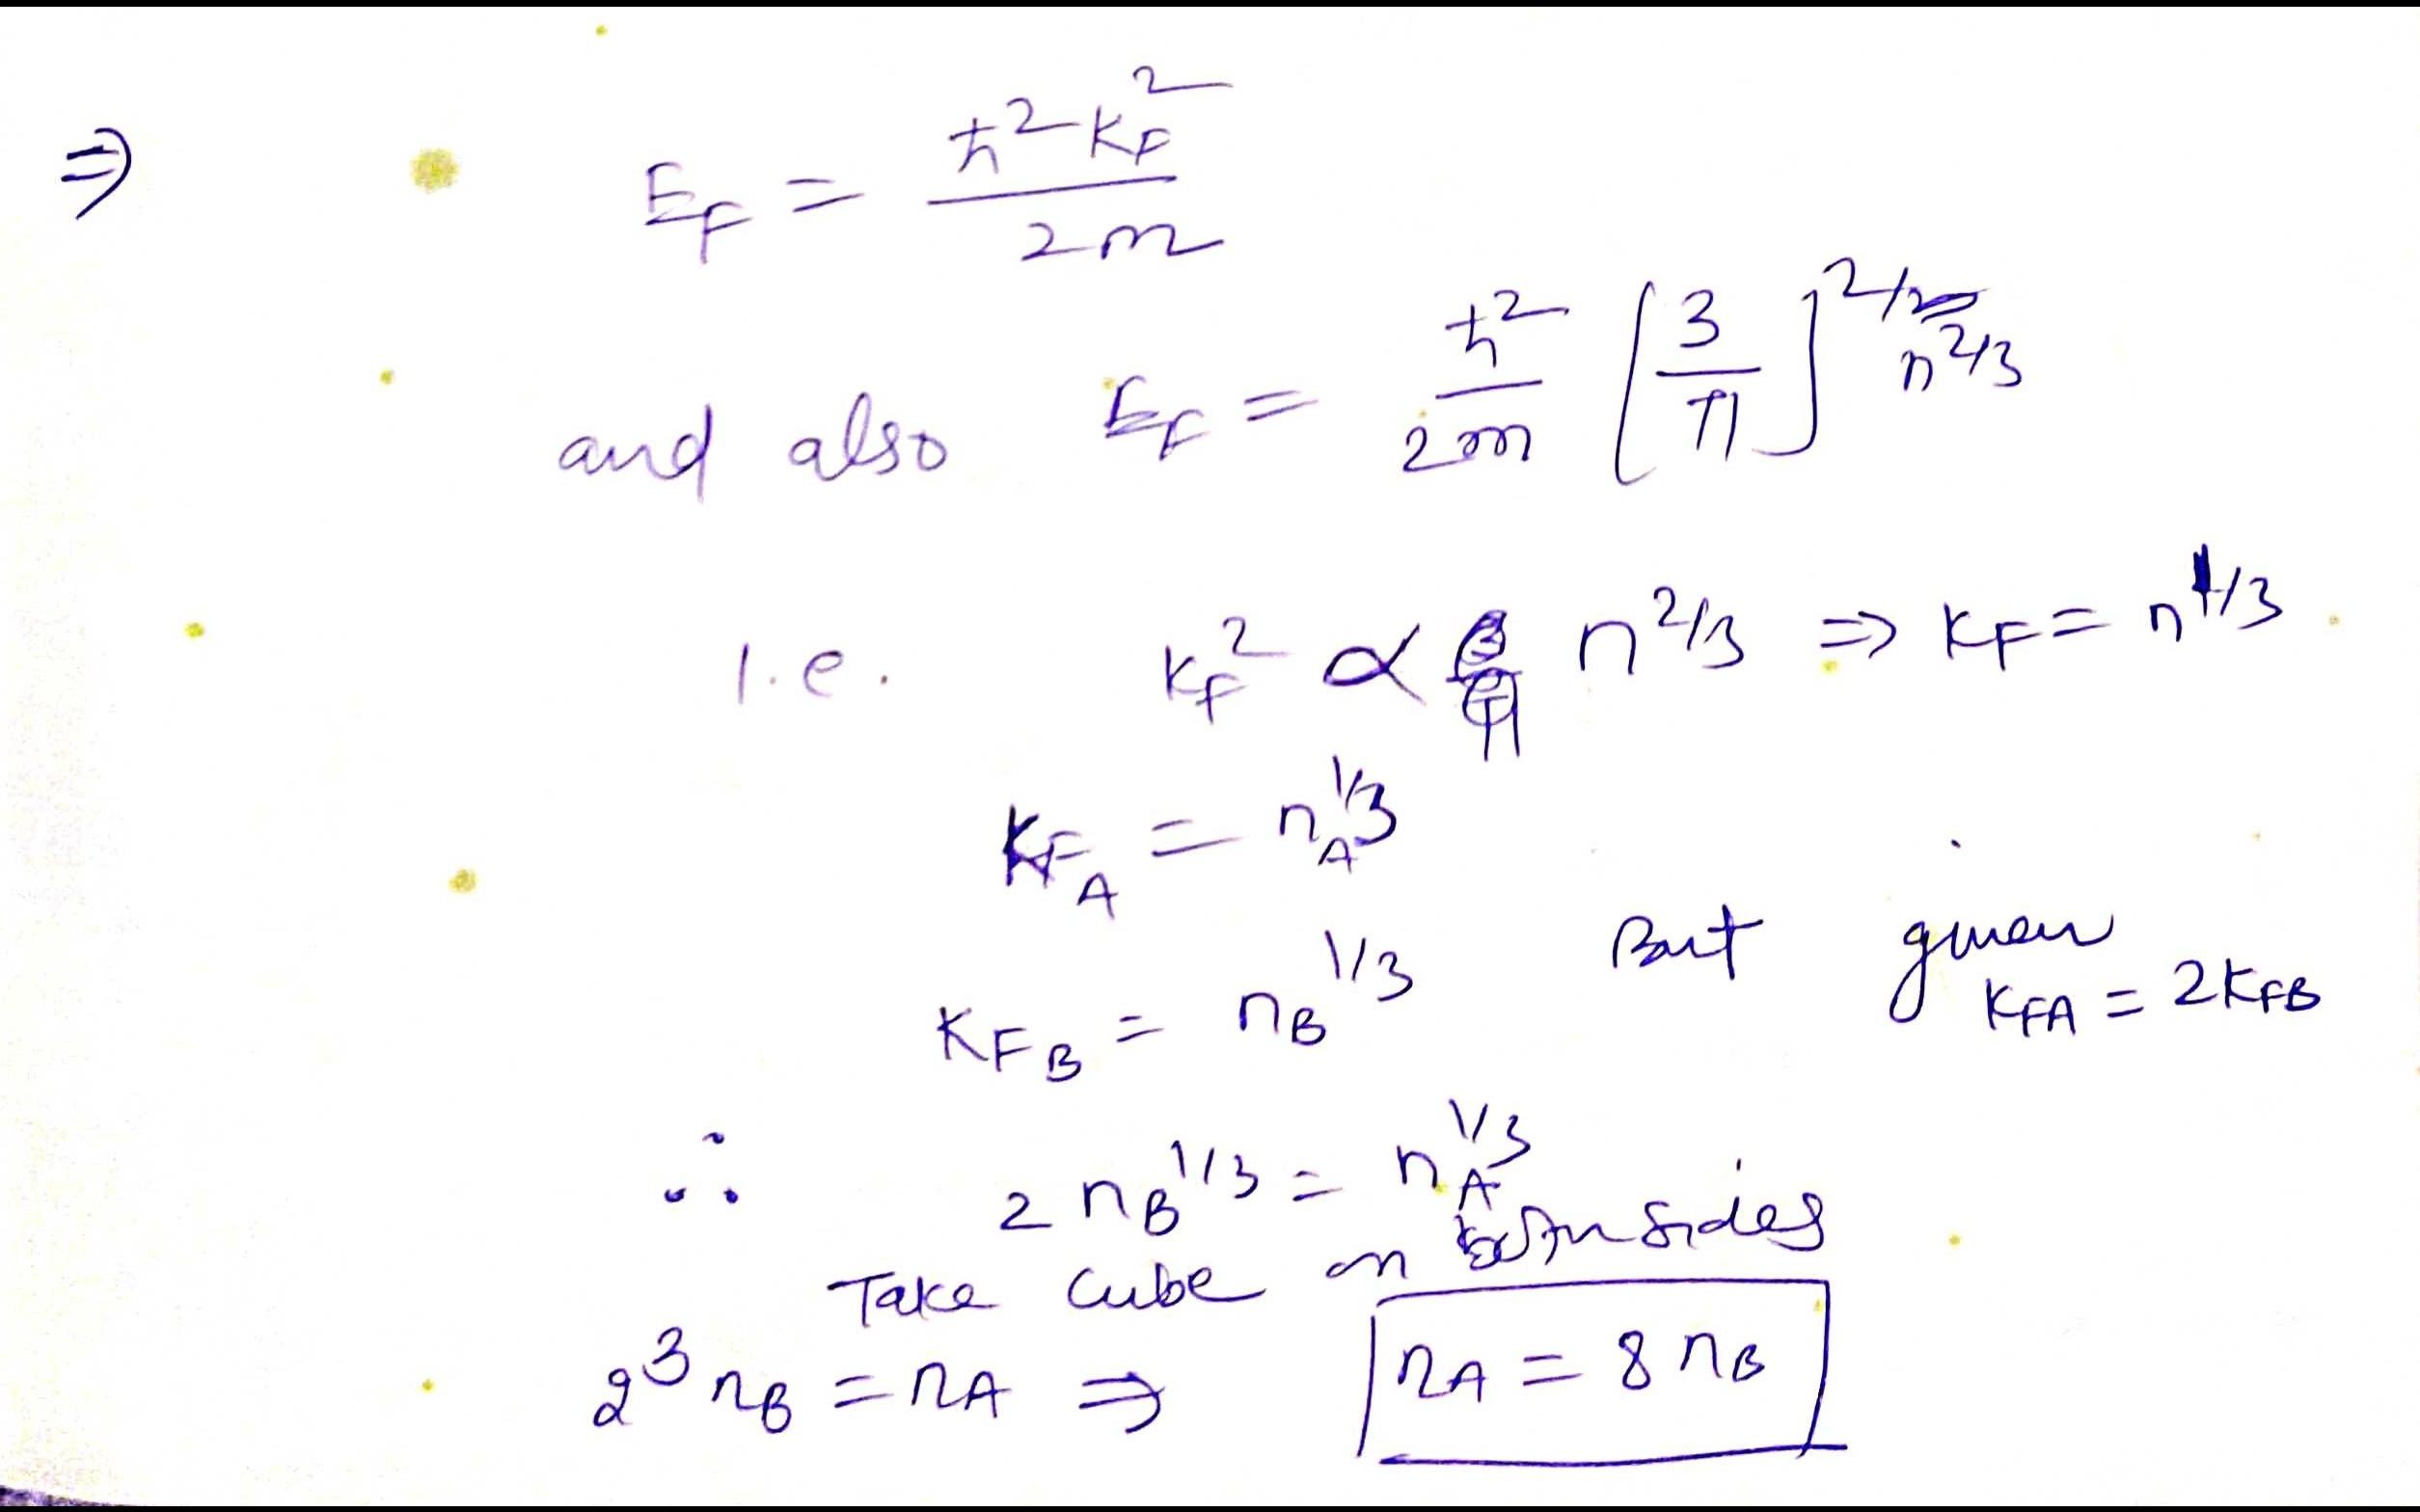 ⇒ E_F = ħ² K_F² / 2m
and also E_F = ħ²/2m [3/π]^2/3 n^2/3
i.e. K_F² ∝ n^2/3 ⇒ K_F = n^1/3
K_F_A = n_A^1/3
K_F_B = n_B^1/3 But given
K_FA = 2K_FB
∴ 2 n_B^1/3 = n_A^1/3
Take cube on both sides
2³ n_B = n_A ⇒ n_A = 8 n_B